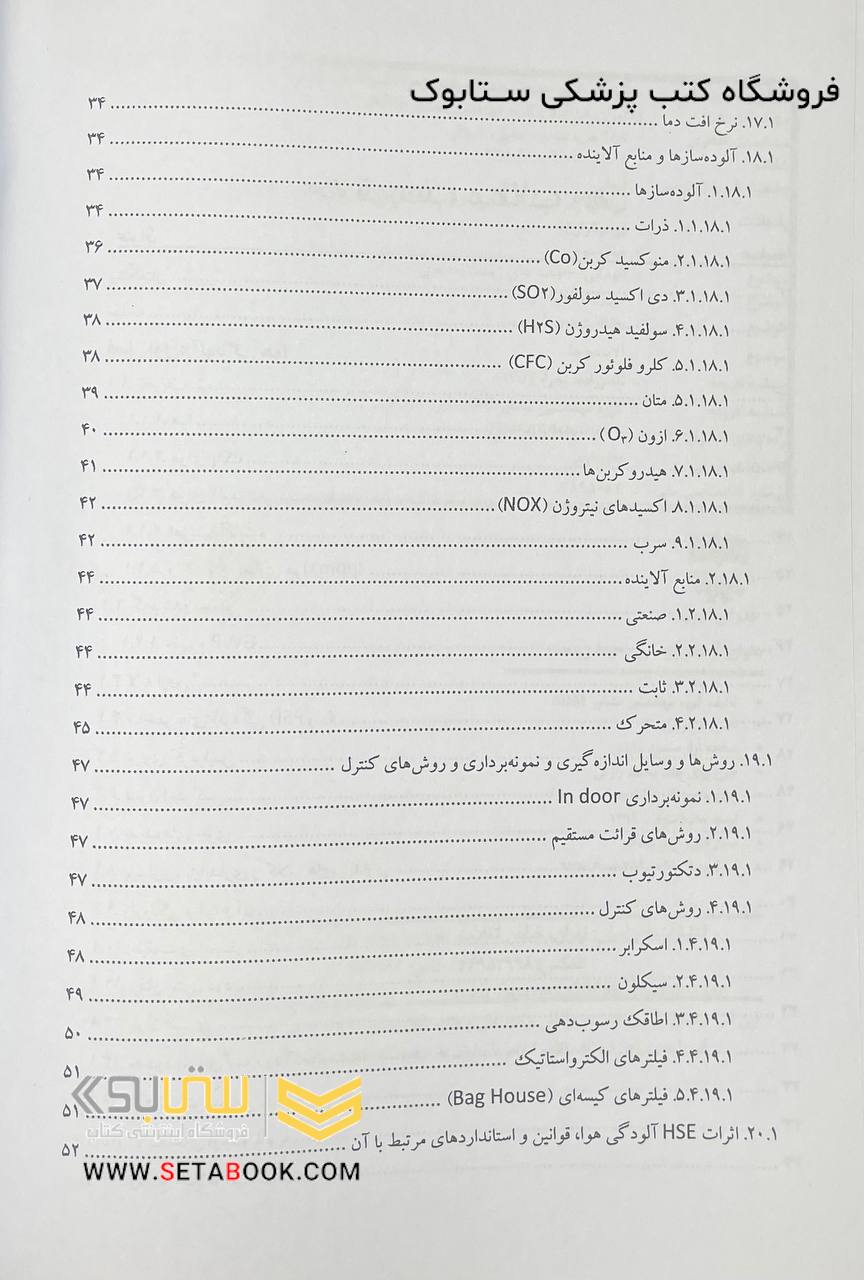 فروشگاه کتب پزشکی ستابوک
۱۷.۱. نرخ افت دما ........ ۳۴
۱۸.۱. آلوده‌سازها و منابع آلاینده ........ ۳۴
۱.۱۸.۱. آلوده‌سازها ........ ۳۴
۱.۱.۱۸.۱. ذرات ........ ۳۴
۲.۱.۱۸.۱. منوکسید کربن(Co) ........ ۳۶
۳.۱.۱۸.۱. دی اکسید سولفور(SO۲) ........ ۳۷
۴.۱.۱۸.۱. سولفید هیدروژن (H۲S) ........ ۳۸
۵.۱.۱۸.۱. کلرو فلوئور کربن (CFC) ........ ۳۸
۵.۱.۱۸.۱. متان ........ ۳۹
۶.۱.۱۸.۱. ازون (O۳) ........ ۴۰
۷.۱.۱۸.۱. هیدروکربن‌ها ........ ۴۱
۸.۱.۱۸.۱. اکسیدهای نیتروژن (NOX) ........ ۴۲
۹.۱.۱۸.۱. سرب ........ ۴۲
۲.۱۸.۱. منابع آلاینده ........ ۴۴
۱.۲.۱۸.۱. صنعتی ........ ۴۴
۲.۲.۱۸.۱. خانگی ........ ۴۴
۳.۲.۱۸.۱. ثابت ........ ۴۴
۴.۲.۱۸.۱. متحرک ........ ۴۵
۱۹.۱. روش‌ها و وسایل اندازه‌گیری و نمونه‌برداری و روش‌های کنترل ........ ۴۷
۱.۱۹.۱. نمونه‌برداری In door ........ ۴۷
۲.۱۹.۱. روش‌های قرائت مستقیم ........ ۴۷
۳.۱۹.۱. دتکتورتیوب ........ ۴۷
۴.۱۹.۱. روش‌های کنترل ........ ۴۸
۱.۴.۱۹.۱. اسکرابر ........ ۴۸
۲.۴.۱۹.۱. سیکلون ........ ۴۹
۳.۴.۱۹.۱. اطاقک رسوب‌دهی ........ ۵۰
۴.۴.۱۹.۱. فیلترهای الکترواستاتیک ........ ۵۱
۵.۴.۱۹.۱. فیلترهای کیسه‌ای (Bag House) ........ ۵۱
۲۰.۱. اثرات HSE آلودگی هوا، قوانین و استانداردهای مرتبط با آن ........ ۵۲
ستابوک
فروشگاه اینترنتی کتاب
WWW.SETABOOK.COM